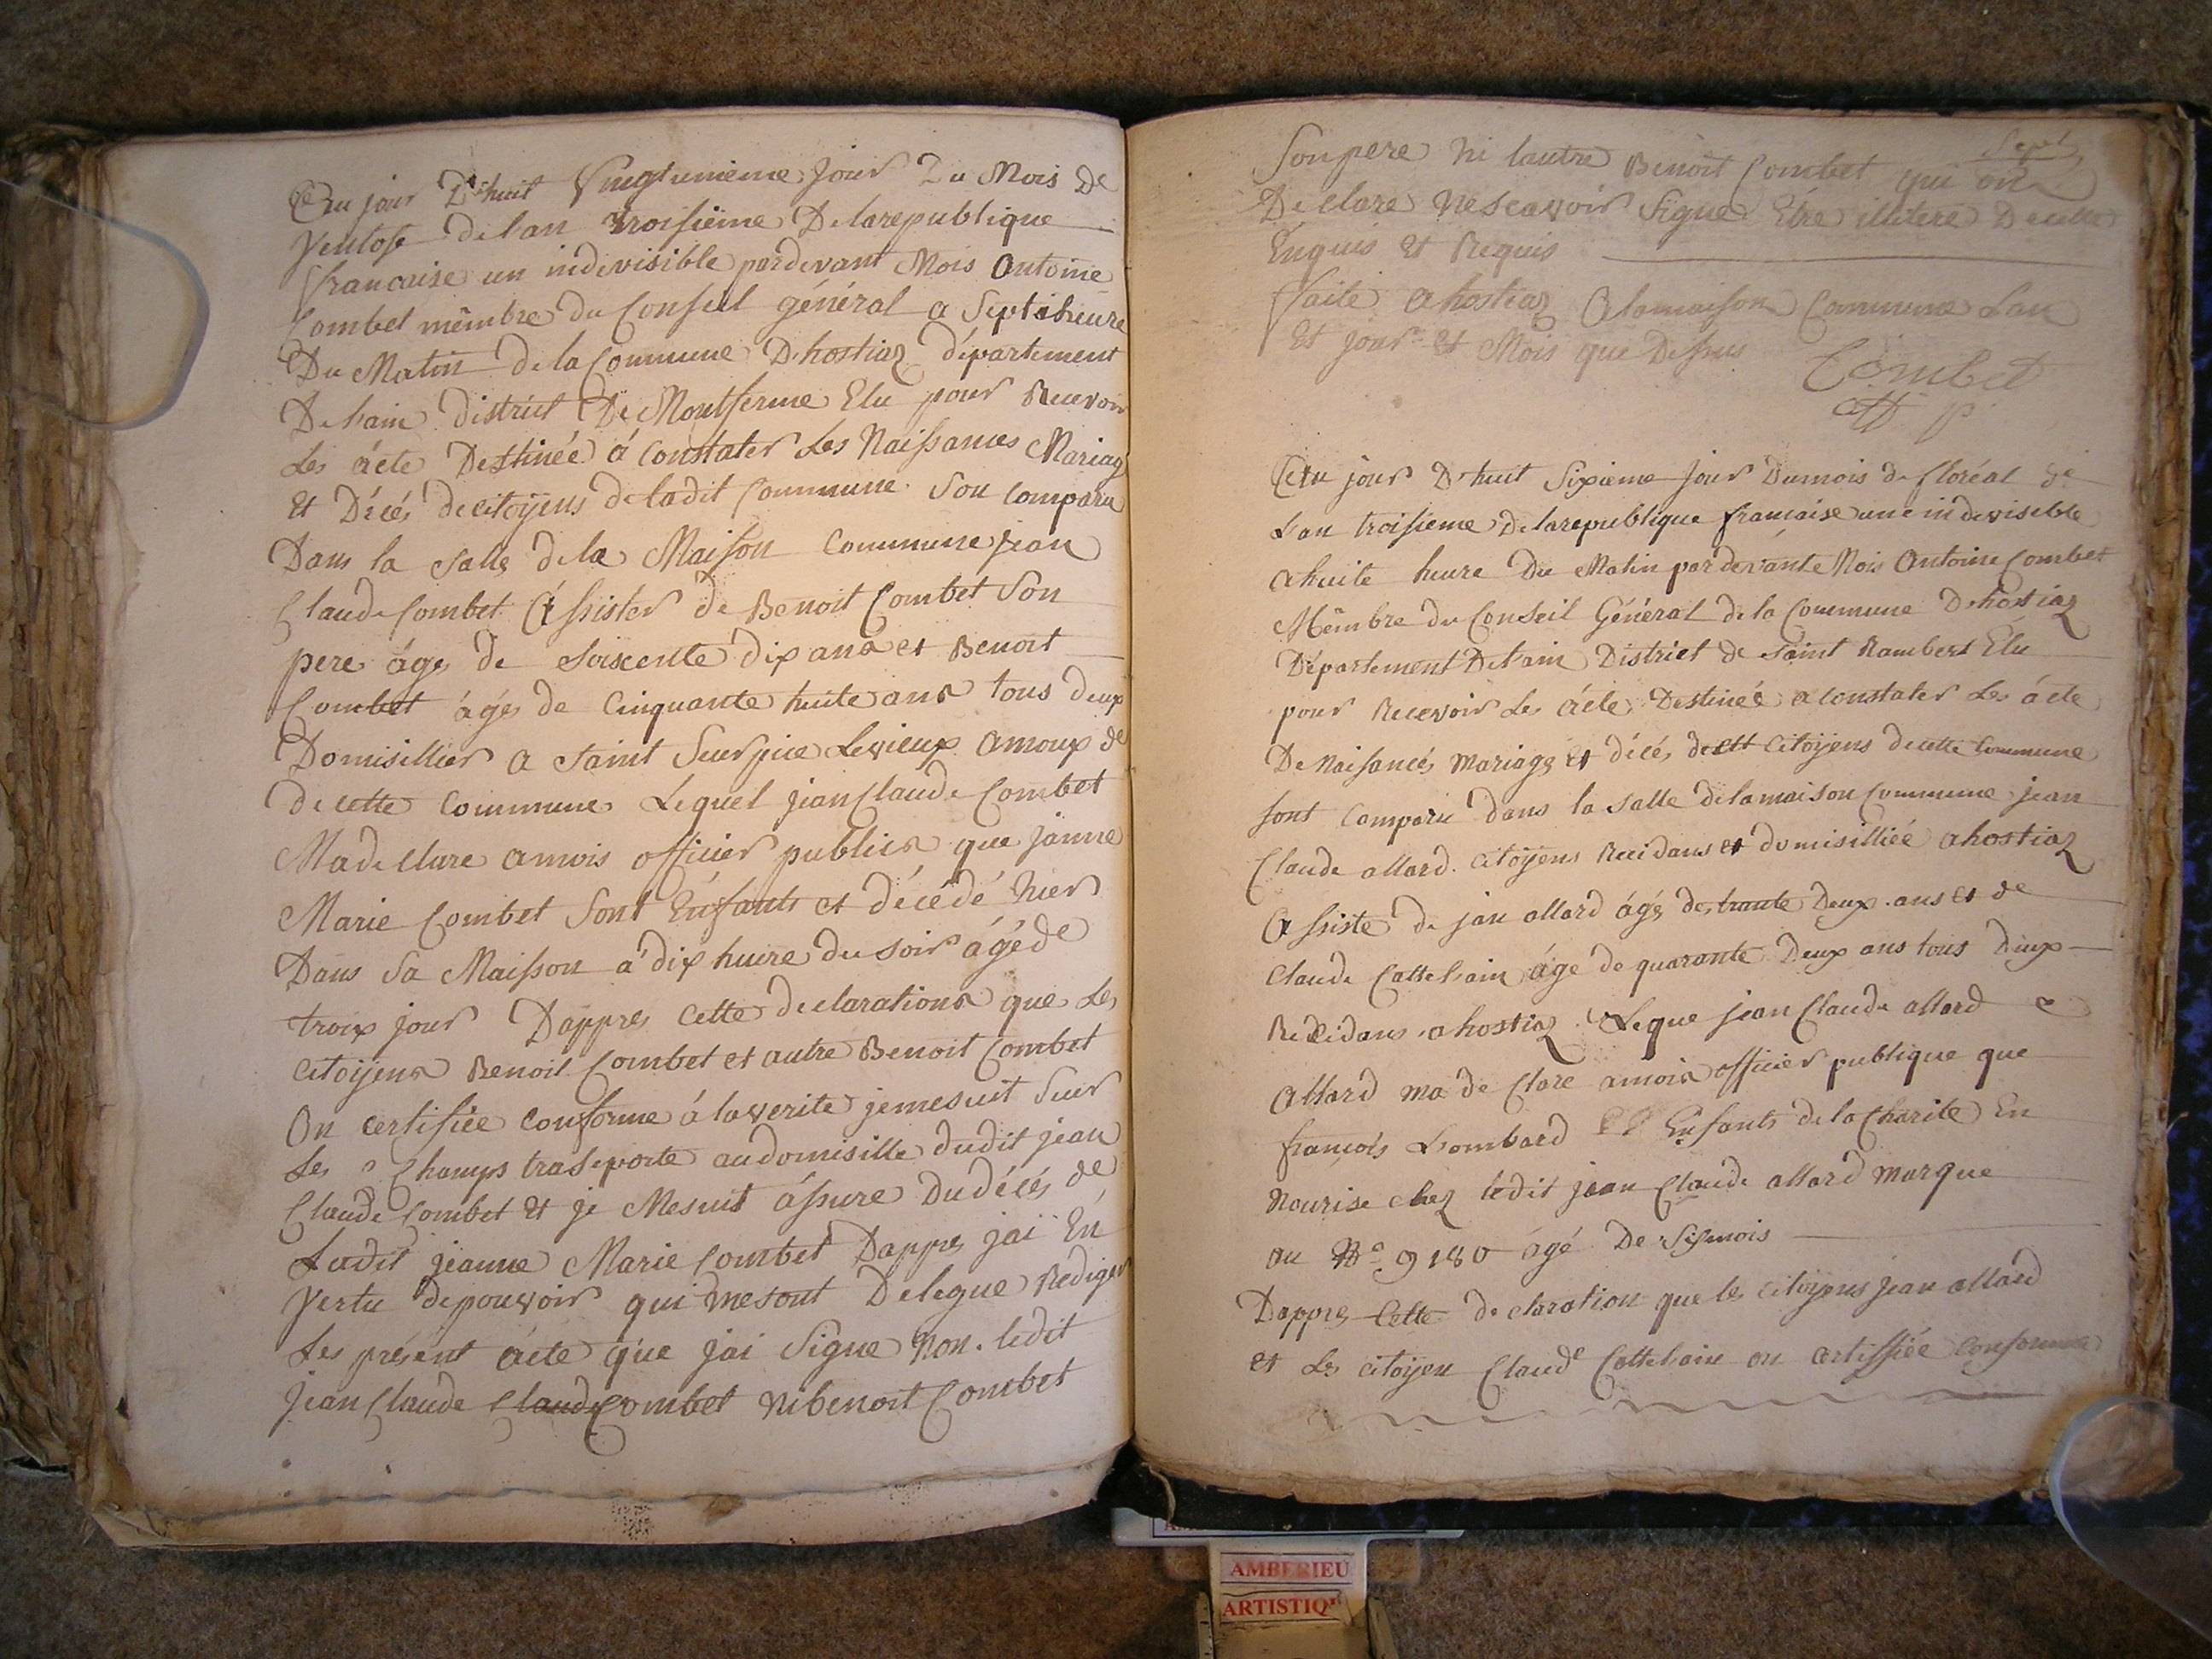 Ceu jour D'huit Vingtunieme jour Du Mois De
Ventose de lan troisième De larepublique
francaise un indevisible pardevant Mois Antoine
Combet mêmbre du Conseil général a Septiheure
Du Matin de la Commune D'hostiaz département
De l'ain district De Montferme Elu pour Recevoir
Les ácte Destinée á Constater Les Naissances Mariag
Et Décés de citoÿens de ladit Commune Son Comparu
Dans la Salle de la Maison Commune jean
Claude Combet Assister de Benoit Combet Son
pere ágé de Soiscente dix ans et Benoit
Combet ágé de Cinquante huite ans tous deux
Domisillier a Saint Seurpice Levieux amoux de
de cette Commune Lequel jean Claude Combet
Madeclare amois officier publics que janne
Marie Combet Sont Énfants et décédé hier
Dans Sa Maisson a dix huire du soir ágé de
troix jour Dappres Cette declarations que Les
Citoÿens Benoit Combet et autre Benoit Combet
On certifiée Conforme á la verite jemesuit Sur
Les Champs trasporte audomisille dudit jean
Claude Combet Et je Mesuit ássure Dudécés de
Ladit jeanne Marie Combet Dappres jai En
Vertu de pouvoir qui me sont Delegue Rediger
Les présent ácte que jai Signe Non ledit
jean Claude Claude Combet Ni benoit Combet
Sept
Son pere Ni lautre Benoit Combet qui on
Declare Ne Scavoir Signe Étre illitere De cette
Enquis Et Requis
faite a hostiaz A lamaison Commune Lan
Et jour et Mois que Dessus
Combet
off p
Ceu jour D'huit Sixieme jour Dumois de floréal de
Lan troisieme de larepublique francaise une indevisible
a huite heure Du Matin pardevante Mois Antoine Combet
Mêmbre du Conseil Général de la Commune D'hostiaz
Département De l'ain District de Saint Rambert Élu
pour Recevoir Les ácte Destinéé a Constater Les ácte
De Naisances mariage Et décés de Citoÿens de cette Commune
sont Comparu dans la Salle de lamaison Commune jean
Claude allard Citoÿens Recidans et domisilliéé a hostiaz
Assiste de jan allard ágé de trante Deux ans et de
Claude Cattelain ágé de quarante Deux ans tous Deux
Recidans a hostiaz Leque jean Claude allard
Allard ma de Clare amois officier publique que
francois Lombard Enfants de la Charite En
Nourise chez ledit jean Claude allard Marque
au No 9180 ágé De Sixmois
Dappres Cette declaration que les Citoÿens jean allard
et Les Citoÿen Claude Cattelain on certiffiée Conforme
AMBERIEU
ARTISTIQ